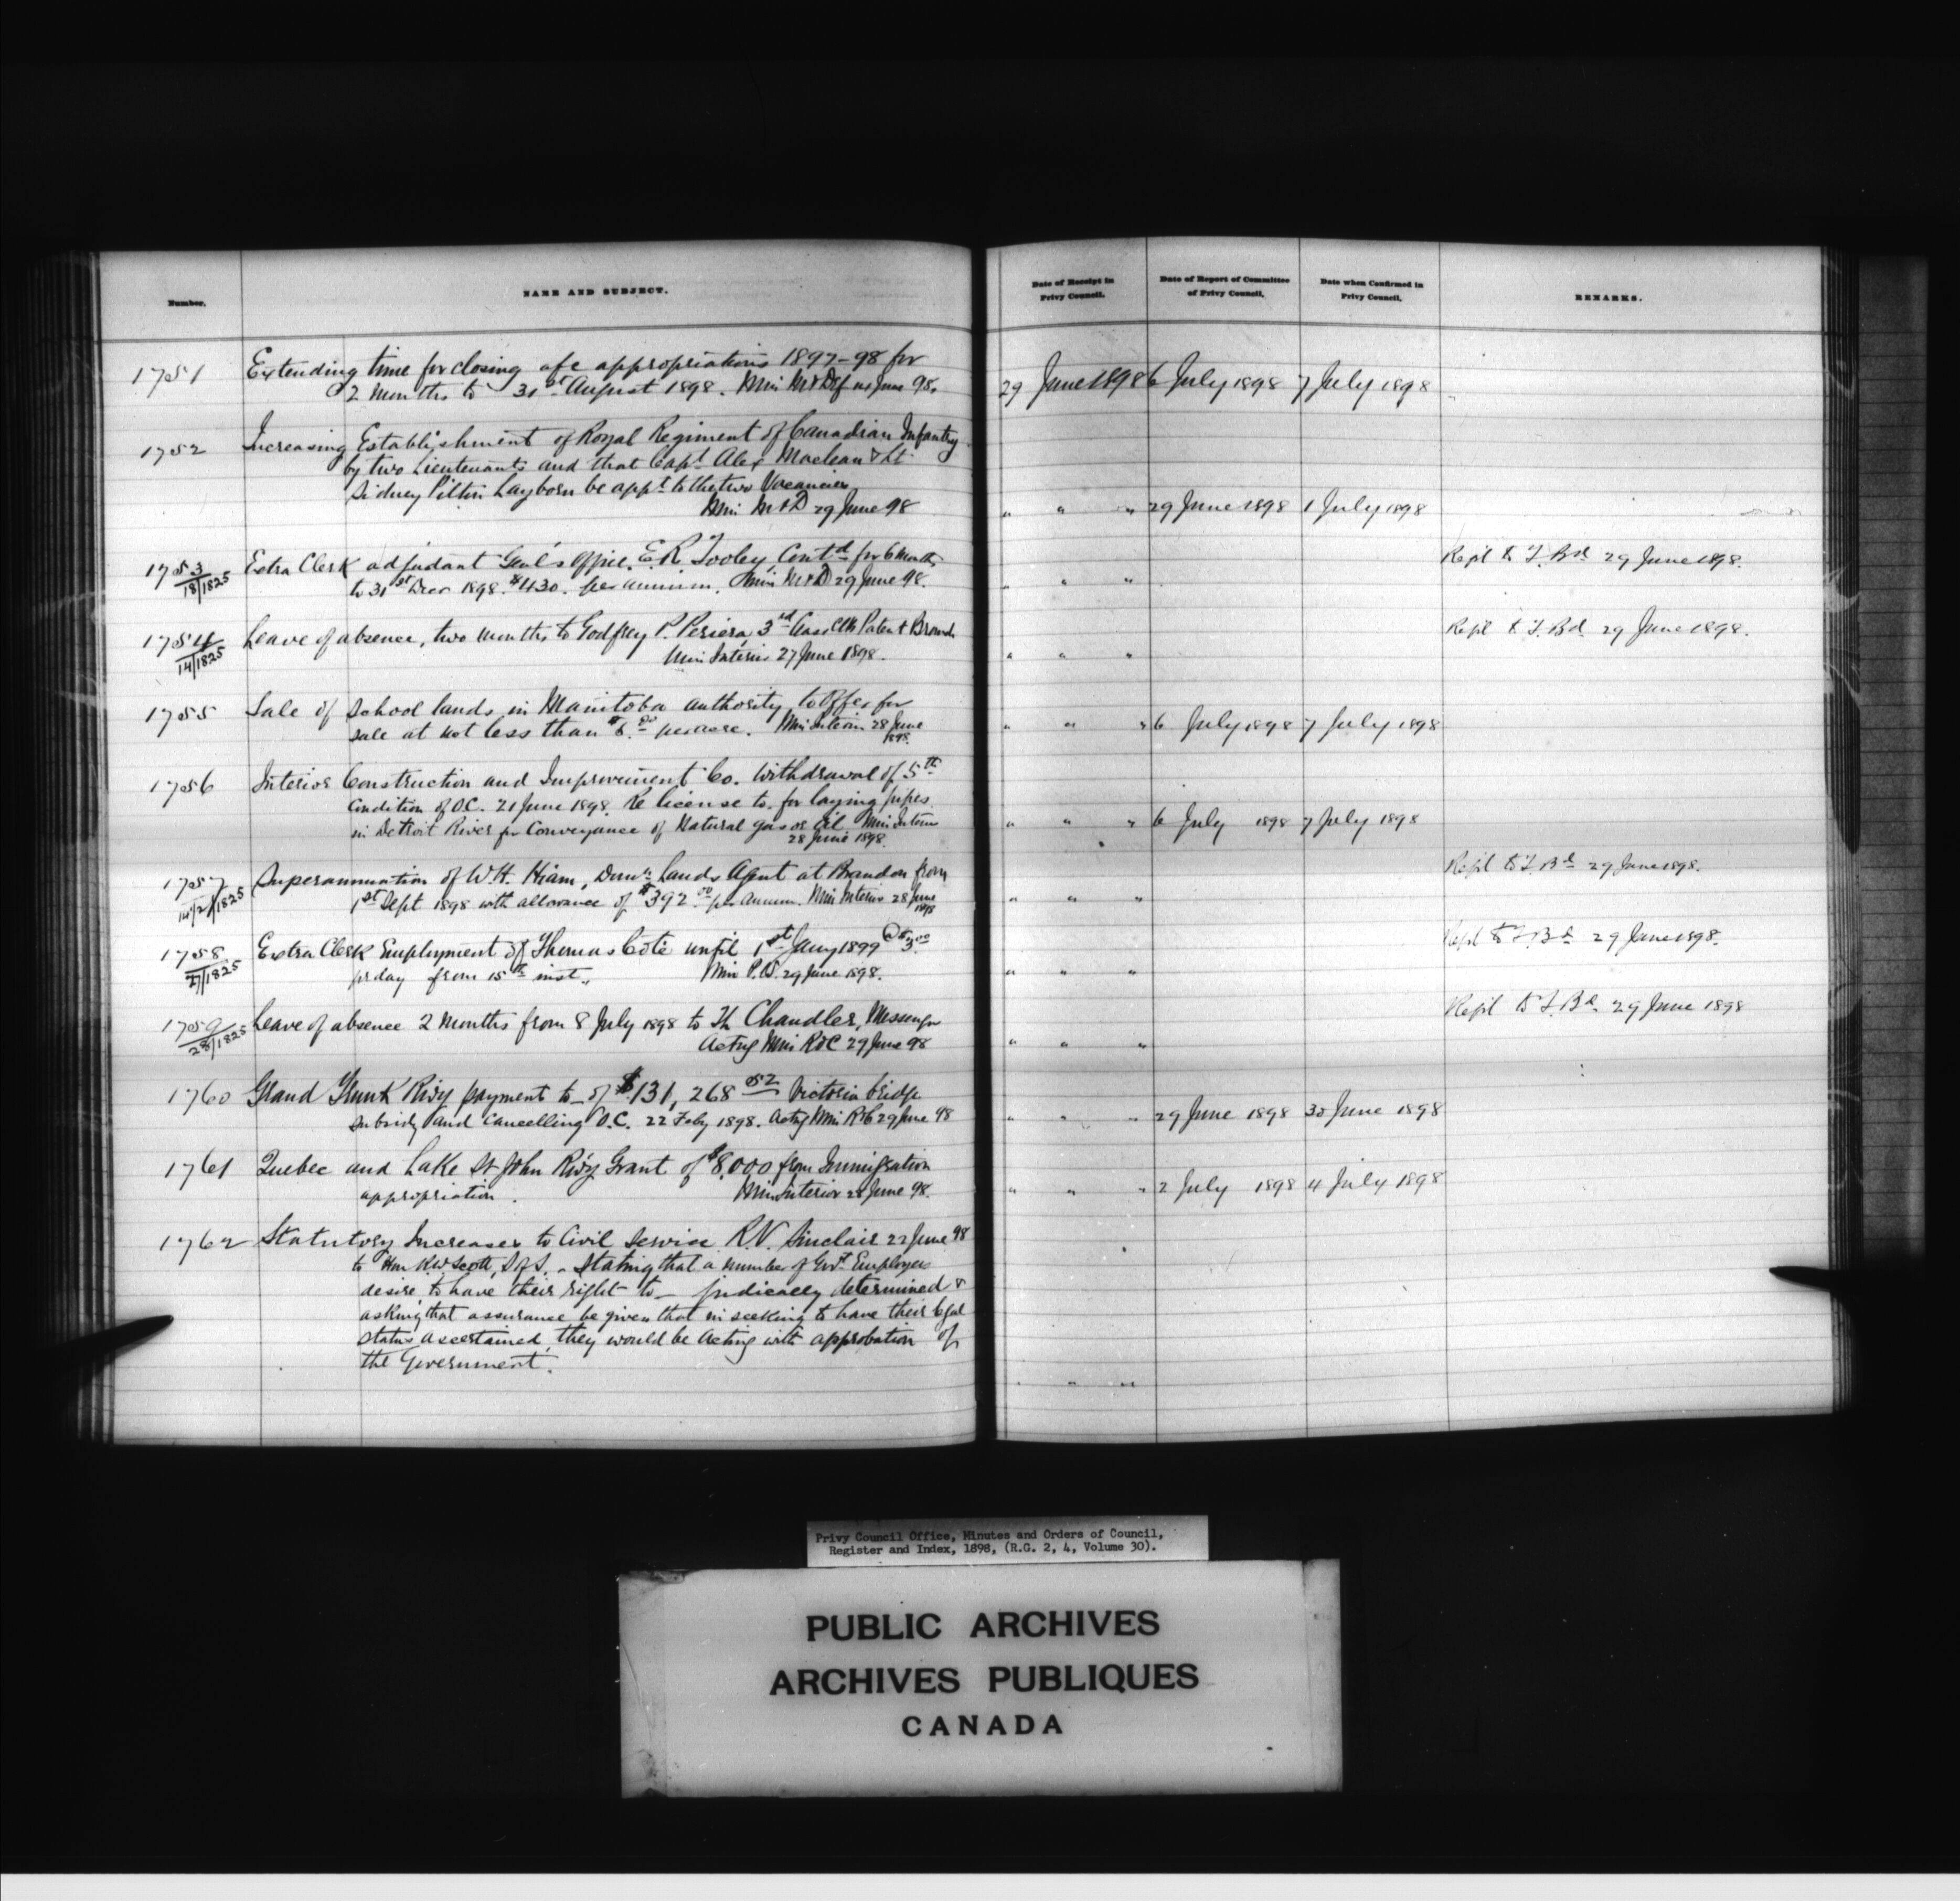 Number.
NAME AND SUBJECT.
Date of Receipt in
Privy Council.
Date of Report of Committee
of Privy Council.
Date when Confirmed in
Privy Council.
REMARKS.
1751 Extending time for closing a/c appropriations 1897-98 for
2 months to 31st August 1898. Min M & Def June 98. 29 June 1898 6 July 1898 7 July 1898
1752 Increasing Establishment of Royal Regiment of Canadian Infantry
by two Lieutenants and that Capt Alex Maclean & Lt
Sidney Layborn be appt to the two Vacancies
Min M & D 29 June 98 " " " 29 June 1898 1 July 1898
1753 Extra Clerk adjudant Genl's Office. E.R. Tooley, Contd for 6 Months Refd to T. Bd 29 June 1898.
18/1825 to 31st Decr 1898. $430. per annum. Min M & D 29 June 98. " " "
1754 Leave of absence, two months to Godfrey P. Periera, 3rd Class Clk Patent Branch Refd to T. Bd 29 June 1898.
14/1825 Min Interior 27 June 1898. " " "
1755 Sale of School lands in Manitoba authority to offer for
sale at not less than $6.00 per acre. Min Interior 28 June 1898. " " " 6 July 1898 7 July 1898
1756 Interior Construction and Improvement Co. Withdrawal of 5th
Condition of O.C. 21 June 1898. Re license to, for laying pipes
in Detroit River for Conveyance of Natural gas or Oil. Min Interior
28 June 1898. " " " 6 July 1898 7 July 1898
1757 Superannuation of W.H. Hiam, Domn Lands Agent at Brandon from Refd to T. Bd 29 June 1898.
1825 1st Sept 1898 with allowance of $392.00 per annum. Min Interior 28 June 1898 " " "
1758 Extra Clerk Employment of Thomas Coté until 1st Jany 1899 @ $3.00 Refd to T. Bd 29 June 1898.
1825 pr day from 15th inst. Min P.W. 29 June 1898. " " "
1759 Leave of absence 2 Months from 8 July 1898 to Chandler, Messenger Refd to T. Bd 29 June 1898
28/1825 Actng Min R & C 29 June 98 " " "
1760 Grand Trunk Rwy payment to of $131,268.52 Victoria bridge
Subsidy and Cancelling O.C. 22 Feby 1898. Actng Min R & C 29 June 98 " " " 29 June 1898 30 June 1898
1761 Quebec and Lake St John Rwy. Grant of $8,000 from Immigration
appropriation. Min Interior 28 June 98. " " " 2 July 1898 4 July 1898
1762 Statutory Increases to Civil Service R.V. Sinclair 22 June 98
to Hon R.W. Scott, S of S. - Stating that a number of Govt Employees
desire to have their right to - judicially determined &
asking that assurance be given that in seeking to have their legal
status ascertained, they would be acting with approbation of
the Government. " " "
Privy Council Office, Minutes and Orders of Council,
Register and Index, 1898, (R.G. 2, 4, Volume 30).
PUBLIC ARCHIVES
ARCHIVES PUBLIQUES
CANADA